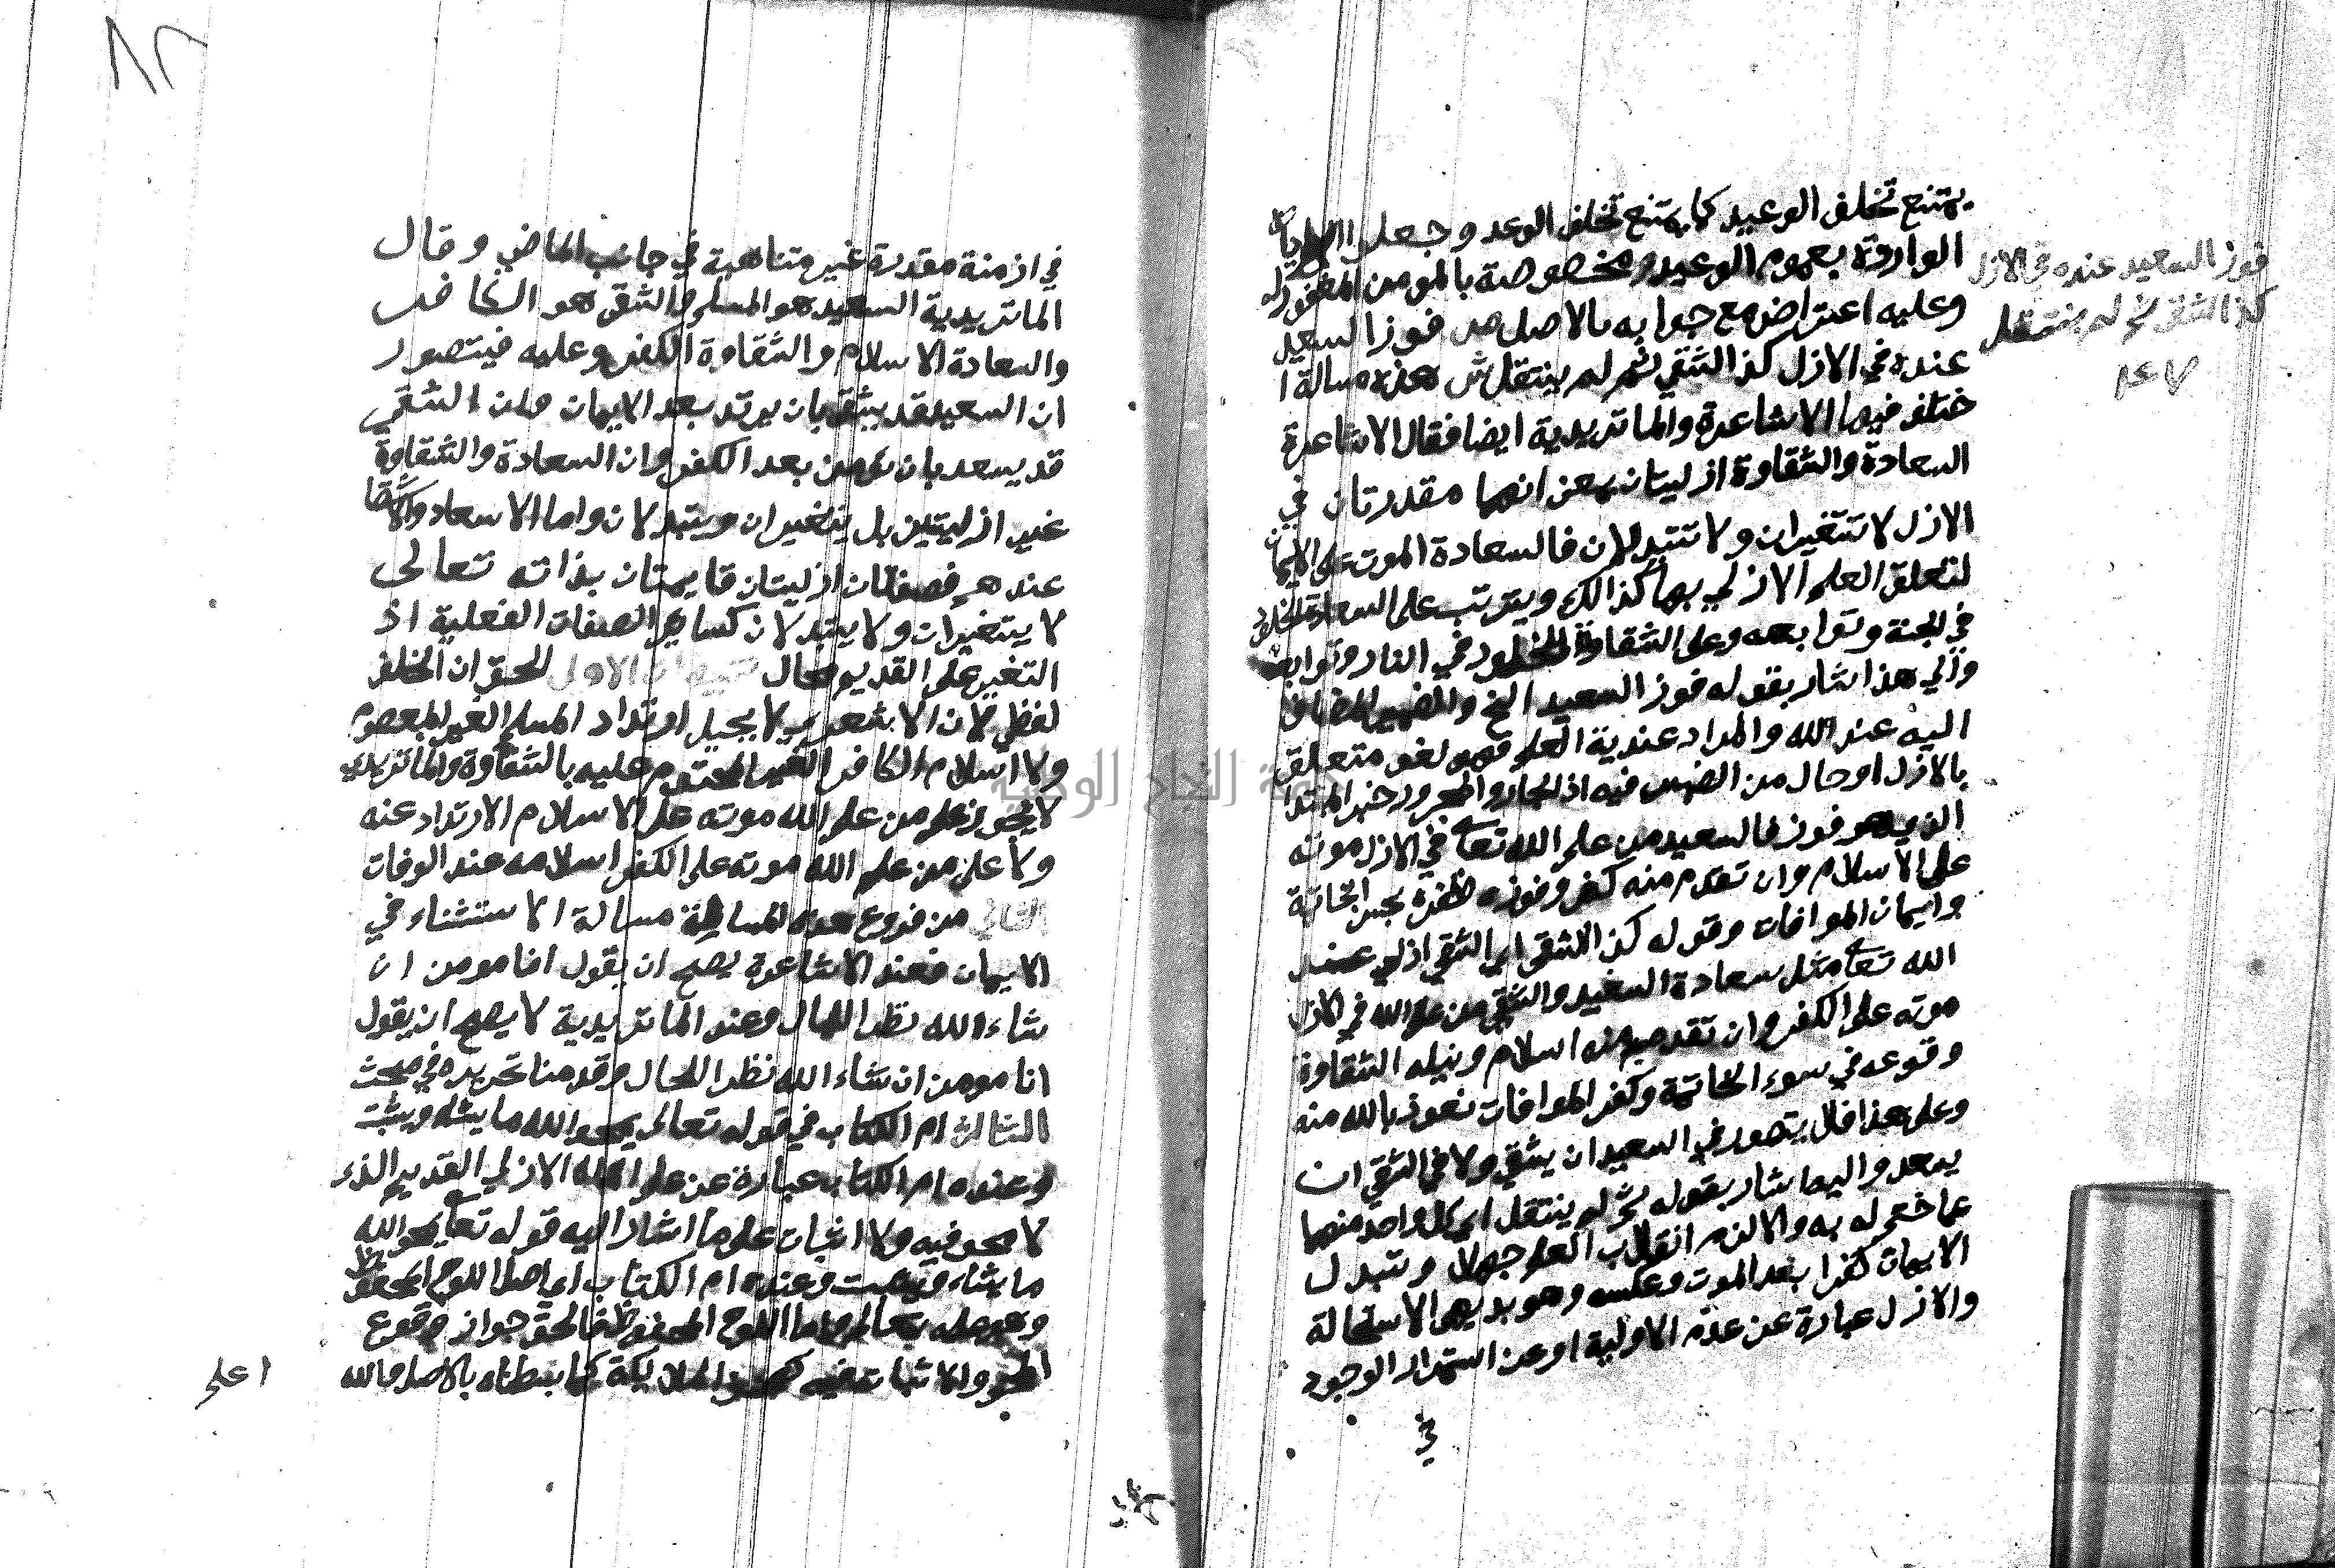 يمتنع تخلف الوعيد كما يمتنع تخلف الوعد وجعلوا الايات
الواردة بعموم الوعيد مخصوصة بالمومن المغفور له
وعليه اعتراض مع جوابه بالاصل ص فوز السعيد
عنده في الازل كذا الشقي ثم لم ينتقل ش هذه مسالة ا
ختلف فيها الاشاعرة والماتريدية ايضا فقال الاشاعرة
السعادة والشقاوة ازليتان بمعنى انهما مقدرتان في
الازل لا تتغيران ولا تتبدلان فالسعادة الموت على الايمان
لتعلق العلم الازلي بها كذالك ويترتب على السعادة الخلود
في الجنة وتوابعه وعلى الشقاوة الخلود في النار وتوابعه
والي هذا اشار بقوله فوز السعيد الخ والضمير المضاف
اليه عند الله والمراد عندية العلم فهو لغو متعلق
بالازل او حال من الضمير فيه اذ الجار والمجرور خبر المبتدا
الذي هو فوز فالسعيد من علم الله تعا في الازل موته
على الاسلام وان تقدم منه كفر وفوزه ظفره بحسن الخاتمة
وايمان الموافات وقوله كذا الشقي اي الشقي ازلي عند
الله تعا مثل سعادة السعيد والشقي من علم الله في الازل
موته على الكفر وان تقدم منه اسلام ونيله الشقاوة
وقوعه في سوء الخاتمة وكفر الموافات نعوذ بالله منه
وعلى هذا فلا يتصور في السعيد ان يشقي ولا في الشقي ان
يسعد واليه اشار بقوله ثم لم ينتقل اي كل واحد منهما
عما ختم له به والا لزم انقلاب العلم جهلا وتبدل
الايمان كفرا بعد الموت وعكسه وهو بديهي الاستحالة
والازل عبارة عن عدم الاولية او عن استمرار الوجود
في
فوز السعيد عنده في الازل
كذا الشقي ثم لم ينتقل
في ازمنة مقدرة غير متناهية في جانب الماضي وقال
الماتريدية السعيد هو المسلم والشقي هو الكافر
والسعادة الاسلام والشقاوة الكفر وعليه فيتصور
ان السعيد قد يشقي بان يرتد بعد الايمان وان الشقي
قد يسعد بان يومن بعد الكفر وان السعادة والشقاوة
غير ازليتين بل يتغيران ويتبدلان واما الاسعاد والاشقا
عندهم فصفتان ازليتان قايمتان بذاته تعالى
لا يتغيران ولا يتبدلان كساير الصفات الفعلية اذ
التغير على القديم محال تنبيهات الاول الحق ان الخلف
لفظي لان الاشعري لا يحيل ارتداد المسلم الغير المعصوم
ولا اسلام الكافر الغير المختوم عليه بالشقاوة والماتريدي
لا يجوز على من علم الله موته على الاسلام الارتداد عنه
ولا على من علم الله موته على الكفر اسلامه عند الوفات
الثاني من فروع هذه المسالة مسالة الاستثناء في
الايمان فعند الاشاعرة يصح ان يقول انا مومن ان
شاء الله نظرا للمال وعند الماتريدية لا يصح ان يقول
انا مومن ان شاء الله نظرا للحال وقدمنا تحريره في مبحث
الثالث ام الكتاب في قوله تعالى يمحو الله ما يشاء ويثبت
وعنده ام الكتاب عبارة عن علم الله الازلي القديم الذي
لا محو فيه ولا اثبات على ما اشار اليه قوله تعا يمحو الله
ما يشاء ويثبت وعنده ام الكتاب اي اصل اللوح المحفوظ
وهو علمه تعالى واما اللوح المحفوظ فالحق جواز وقوع
المحو والاثبات فيه كصحف الملايكة كما بسطناه بالاصل والله
اعلم